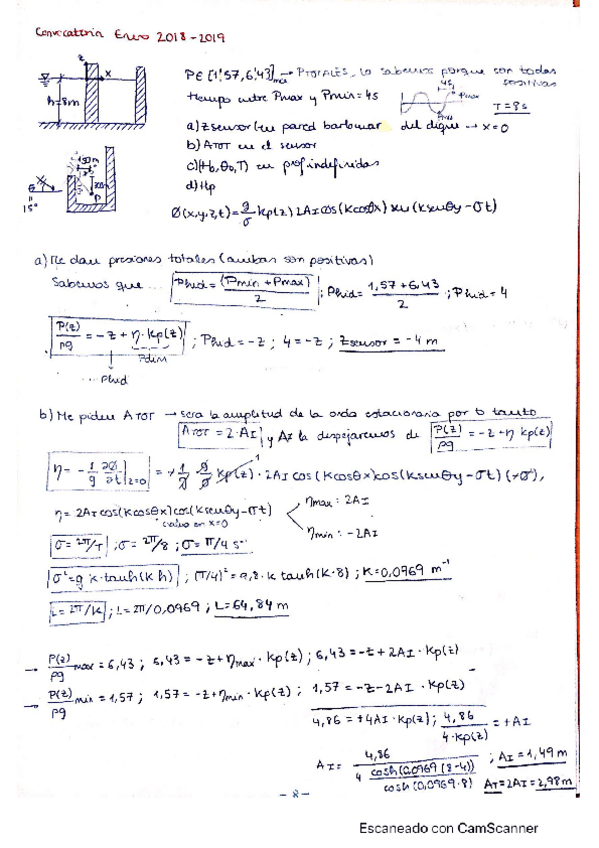 Convocatoria Enero 2018-2019
z
x
h=8m
15°
P
PE [1'57, 6'43] mca → PTOTALES, lo sabemos porque son todas positivas
tiempo entre Pmax y Pmin = 4s
4s
Pmax
Pmin
T = 8s
a) Zsensor (en pared barlomar del dique → x=0
b) ATOT en el sensor
c) (H₀, θ₀, T) en prof. indefinidas
d) Kp
Ø(x,y,z,t) = g/σ Kp(z) 2AI cos(K cosθx) sen(K senθy - σt)
a) Me dan presiones totales (ambas son positivas)
Sabemos que ... Phid = (Pmin + Pmax)/2 ; Phid = 1,57 + 6,43 / 2 ; Phid = 4
P(z)/ρg = -z + η·Kp(z) ; Phid = -z ; 4 = -z ; Zsensor = -4 m
Pdin
Phid
b) Me piden ATOT → sera la amplitud de la onda estacionaria por lo tanto
ATOT = 2·AI y AI la despejaremos de P(z)/ρg = -z + η Kp(z)
η = -1/g ∂Ø/∂t |z=0 = + 1/g · g/σ Kp(z) · 2AI cos(K cosθx) cos(K senθy - σt) (+σ),
η = 2AI cos(K cosθx) cos(K senθy - σt)
en x=0
ηmax: 2AI
ηmin: -2AI
σ = 2π/T ; σ = 2π/8 ; σ = π/4 s⁻¹
σ² = g K·tanh(K h) ; (π/4)² = 9,8·K tanh(K·8) ; K = 0,0969 m⁻¹
L = 2π/K ; L = 2π/0,0969 ; L = 64,84 m
→ P(z)/ρg max = 6,43 ; 6,43 = -z + ηmax·Kp(z) ; 6,43 = -z + 2AI·Kp(z)
→ P(z)/ρg min = 1,57 ; 1,57 = -z + ηmin·Kp(z) ; 1,57 = -z - 2AI·Kp(z)
4,86 = +4AI·Kp(z) ; 4,86 / 4·Kp(z) = +AI
AI = 4,86 / 4 cosh(0,0969(8-4)) / cosh(0,0969·8) ; AI = 1,49 m
AT = 2AI = 2,98 m
- 8 -
Escaneado con CamScanner